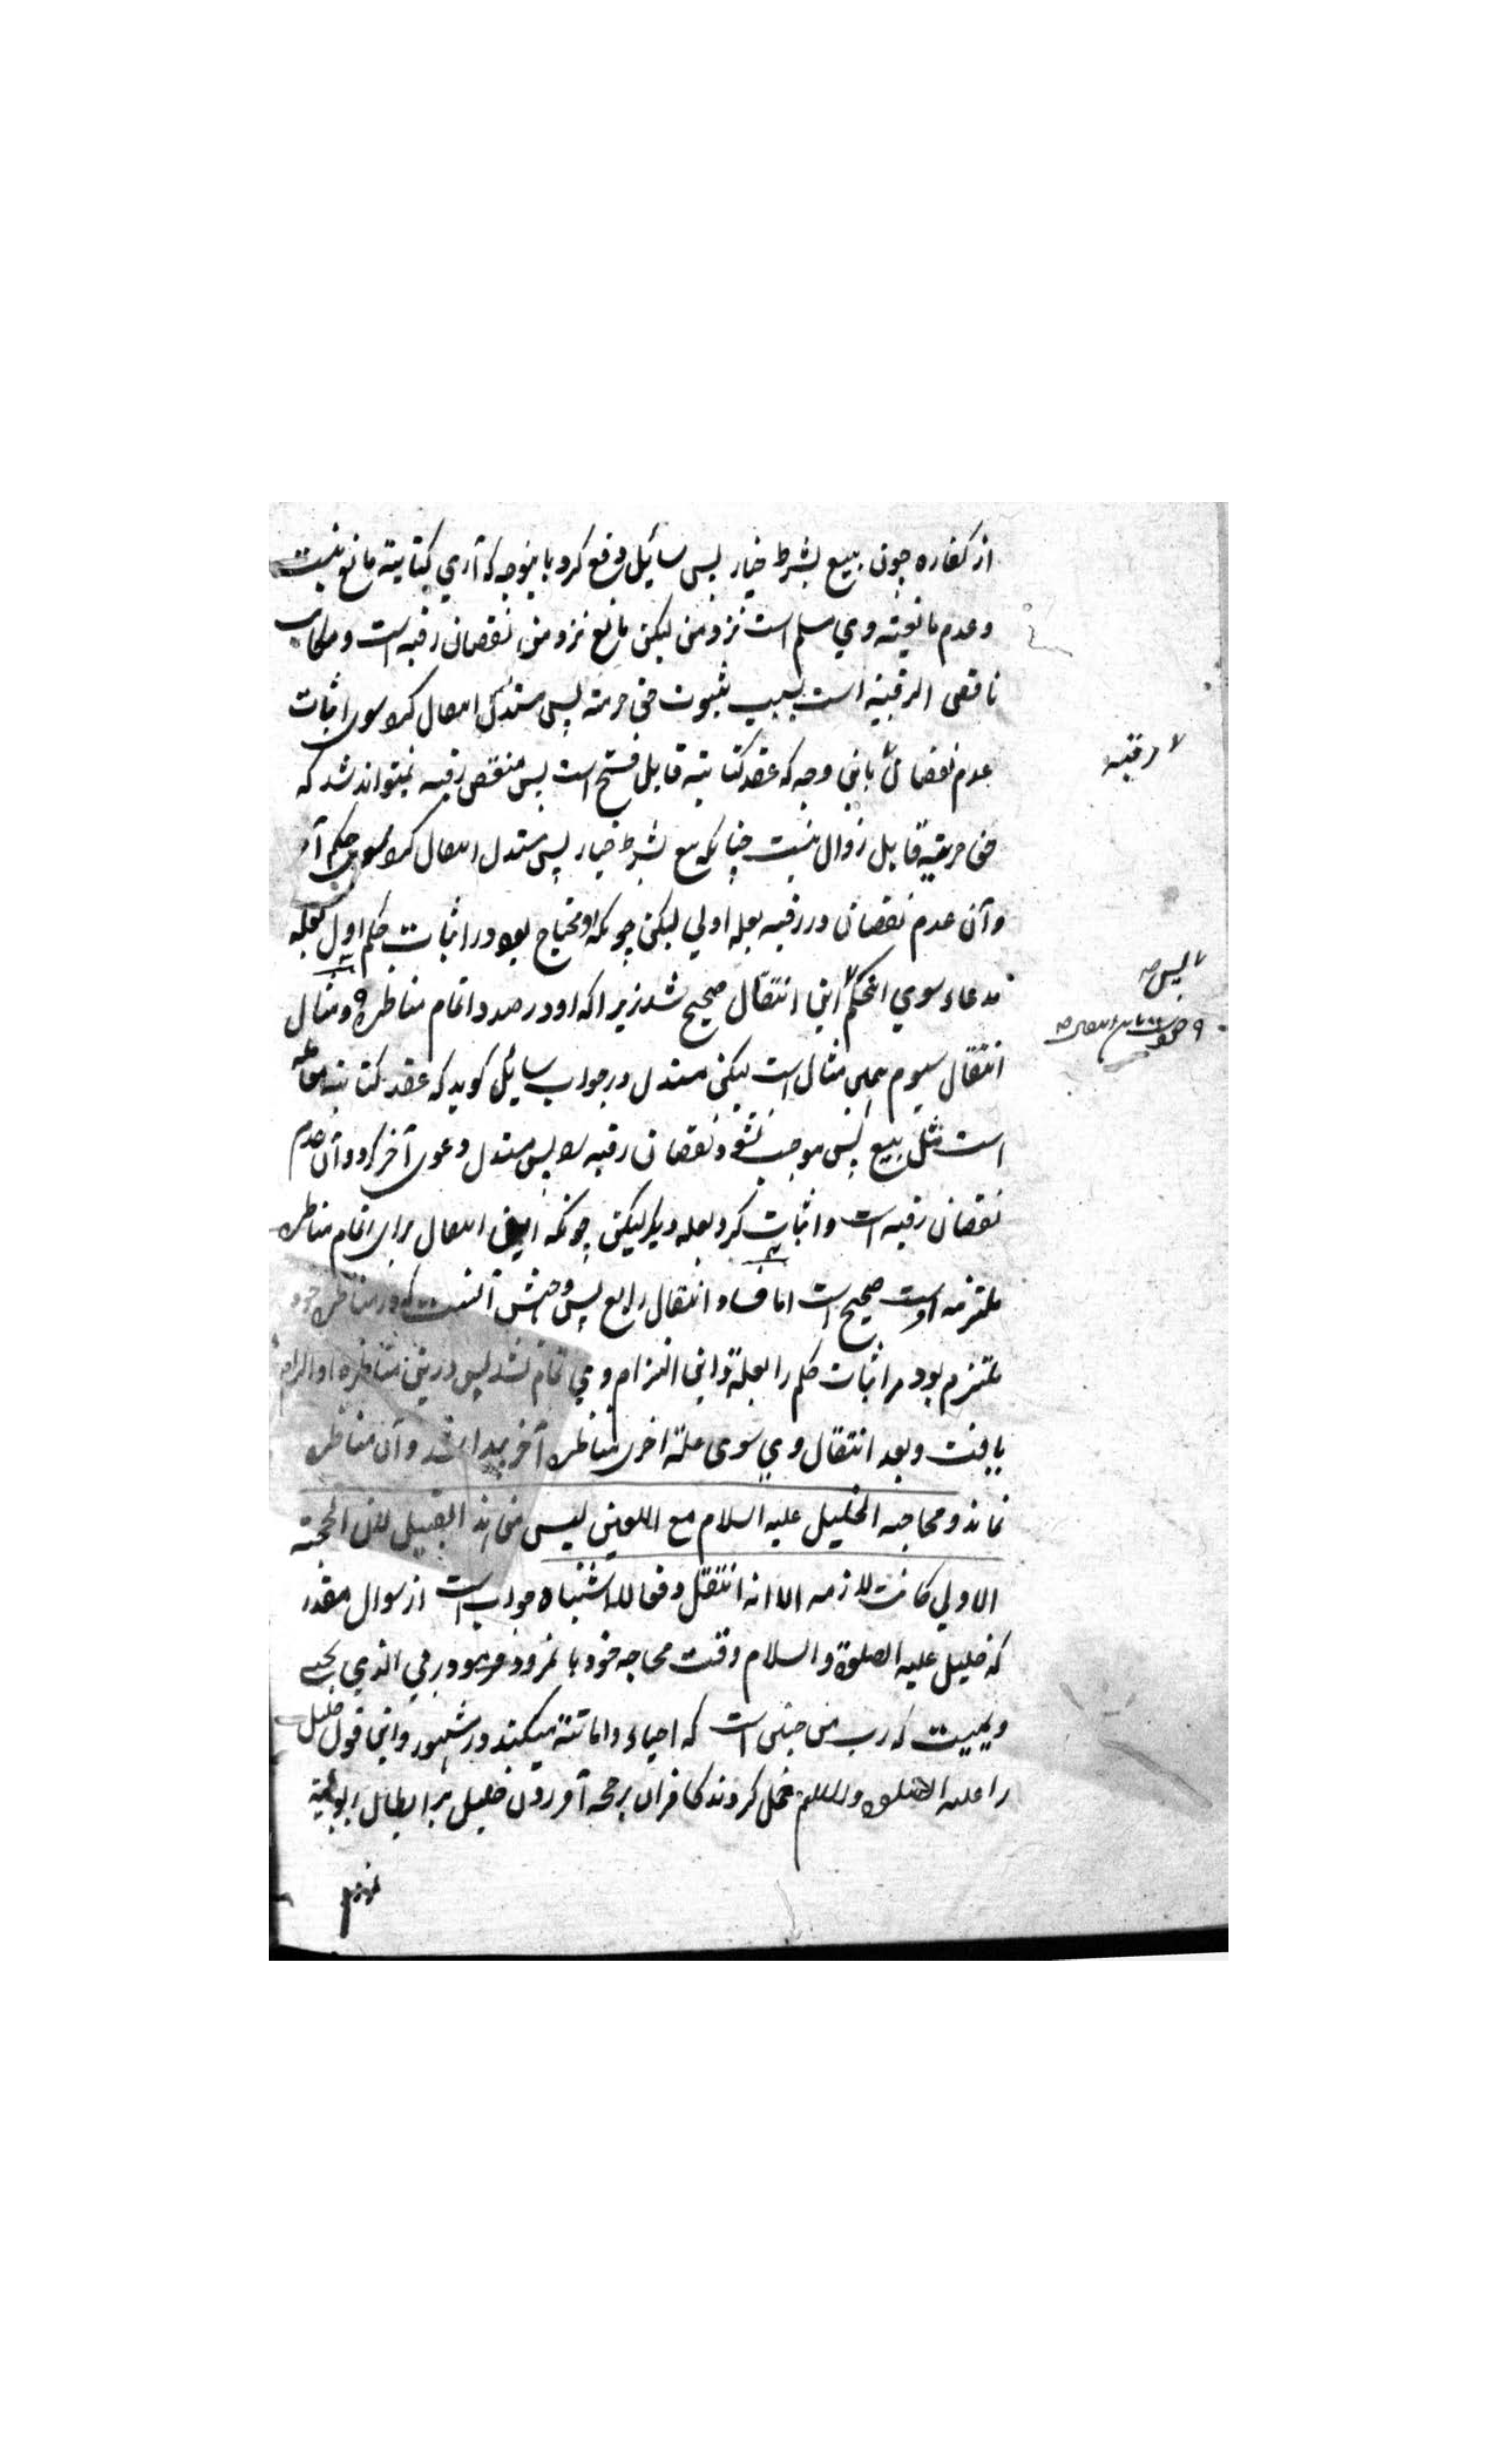 از کفاره چون بیع بشرط خیار پس سائیل دفع کرد باینوجه که آری کتابیة مانع نیست
وعدم مانعیته وي مسلم است نزد من لیکن مانع نزد من نقصان رقبه است ومکاتب
ناقص الرقبة است بسبب ثبوت حق حریته پس مستدل انتقال کرد سوی اثبات
عدم نقصان باین وجه که عقد کتابیة قابل فسخ است پس منقص رقبه نمیتواند شد که
حق حریة قابل زوال نیست چنانکه بیع بشرط خیار پس مستدل انتقال کرد سوی حکم آخر
وآن عدم نقصان در رقبه بعله اولي لیکن چونکه او محتاج بود در اثبات حکم اول بعله
مدعاء سوي الحکم این انتقال صحیح شد زیراکه او در صدد اتمام مناظره ومثال
انتقال سیوم همین مثال است لیکن مستدل در جواب سائیل کوید که عقد کتابیة
است مثل بیع پس موجب نشود نقصان رقبه را پس مستدل دعوی آخر کرد وآن عدم
نقصان رقبه است واثبات کرد بعله دیکر لیکن چونکه این انتقال برای اتمام مناظره
ملتزمه اوست صحیح است اما فساد انتقال رابع پس وجهش آنست که در مناظره خود
ملتزم بود مر اثبات حکم را بعلة واین التزام وي تمام نشد پس درین مناظره او الزام
یافت وبعد انتقال وي سوی علة اخری مناظره آخر پیدا شد وآن مناظره
نماند ومحاجه الخلیل علیه السلام مع اللعین لیس من هذا القبیل لان الحجة
الاولي کانت لازمه الا انه انتقل دفعا للاشتباه جواب است از سوال مقدر
که خلیل علیه الصلوة والسلام وقت محاجه خود با نمرود فرمود ربي الذي یحیي
ویمیت که رب من جنین است که احیاء واماتتة میکند ورشهور واین قول خلیل
را علیه الصلوة والسلام حمل کردند کافران بر حجه آوردن خلیل بر ابطال ربوبیة
نمرود
رقبه
لیس